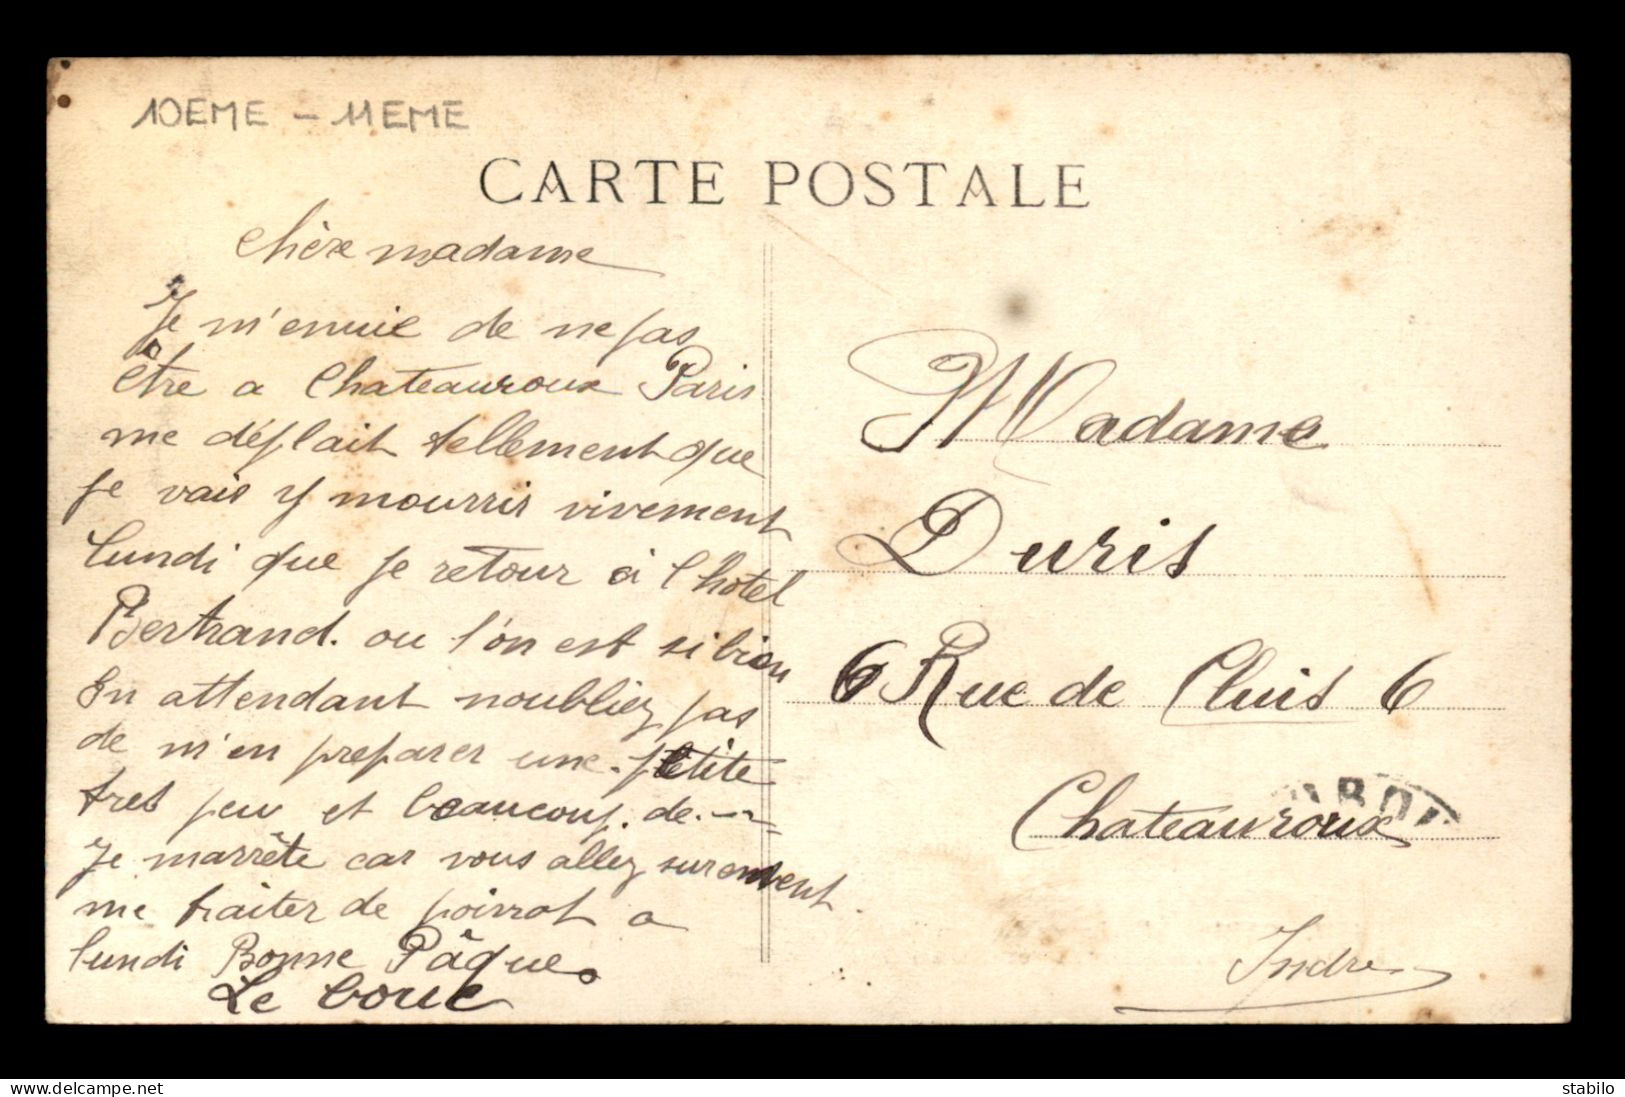 10EME - 11EME
CARTE POSTALE
Chère madame
Je m'enuie de ne pas
être a Chateauroux Paris
me déplait tellement que
je vais y mourrir vivement
lundi que je retour à l'hotel
Bertrand. ou l'on est si bien
En attendant noubliez pas
de m'en preparer une petite
tres peu et beaucoup. de.
Je marrête car vous allez surement
me traiter de poivrot a
lundi Bonne Pâques
Le
Madame
Duris
6 Rue de Cluis 6
Chateauroux
Indre
www.delcampe.net
stabilo